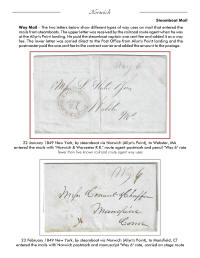 Norwich
Steamboat Mail
Way Mail - The two letters below show different types of way uses on mail that entered the
mails from steamboats. The upper letter was received by the railroad route agent when he was
at the Allyn's Point landing. He paid the steamboat captain one cent fee and added it as a way
fee. The lower letter was carried direct to the Post Office from Allyn's Point landing and the
postmaster paid the one cent fee to the contract carrier and added the amount to the postage.
Way 6
Webster
Ms
22 January 1849 New York, by steamboat via Norwich (Allyn's Point), to Webster, MA
entered the mails with "Norwich & Worcester R.R." route agent postmark and pencil "Way 6" rate
fewer than five known railroad route agent way uses
Way 6
Mansfield
Conn
23 February 1849 New York, by steamboat via Norwich (Allyn's Point), to Mansfield, CT
entered the mails with Norwich postmark and manuscript "Way 6" rate, carried on stage route